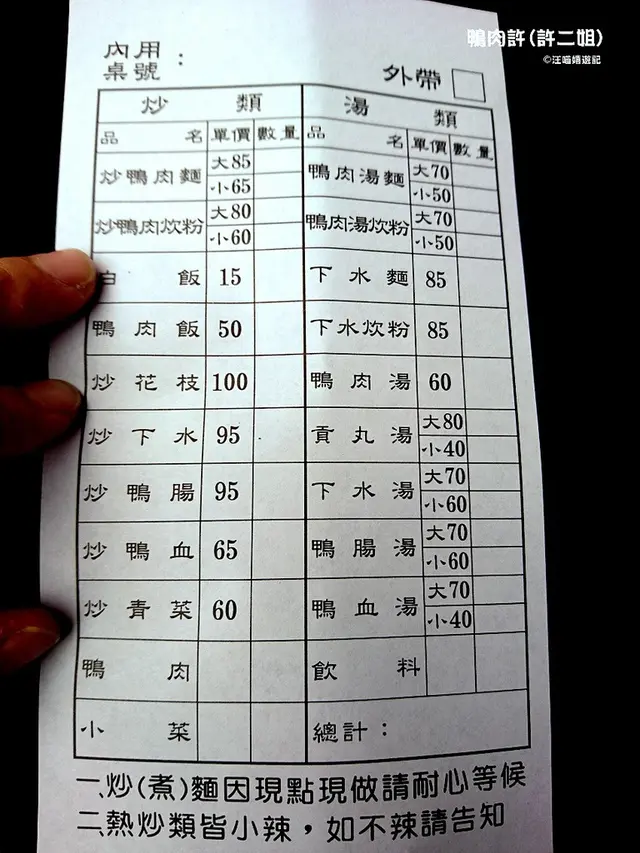 鴨肉許(許二姐)
©汪喵媽遊記
內用
桌號：
外帶
炒類 湯類
品名 單價 數量 品名 單價 數量
炒鴨肉麵 大85 小65 鴨肉湯麵 大70 小50
炒鴨肉炊粉 大80 小60 鴨肉湯炊粉 大70 小50
白飯 15 下水麵 85
鴨肉飯 50 下水炊粉 85
炒花枝 100 鴨肉湯 60
炒下水 95 貢丸湯 大80 小40
炒鴨腸 95 下水湯 大70 小60
炒鴨血 65 鴨腸湯 大70 小60
炒青菜 60 鴨血湯 大70 小40
鴨肉 飲料
小菜 總計：
一、炒(煮)麵因現點現做請耐心等候
二、熱炒類皆小辣，如不辣請告知